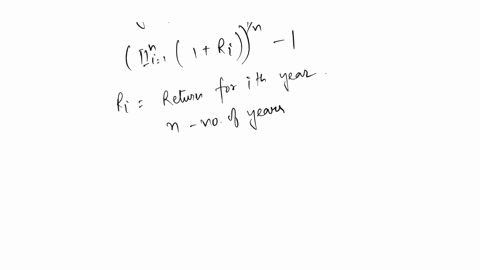 ( ∏ⁿᵢ₌₁ ( 1 + Rᵢ ) )^1/n - 1
Rᵢ = Return for ith year.
n - no. of years